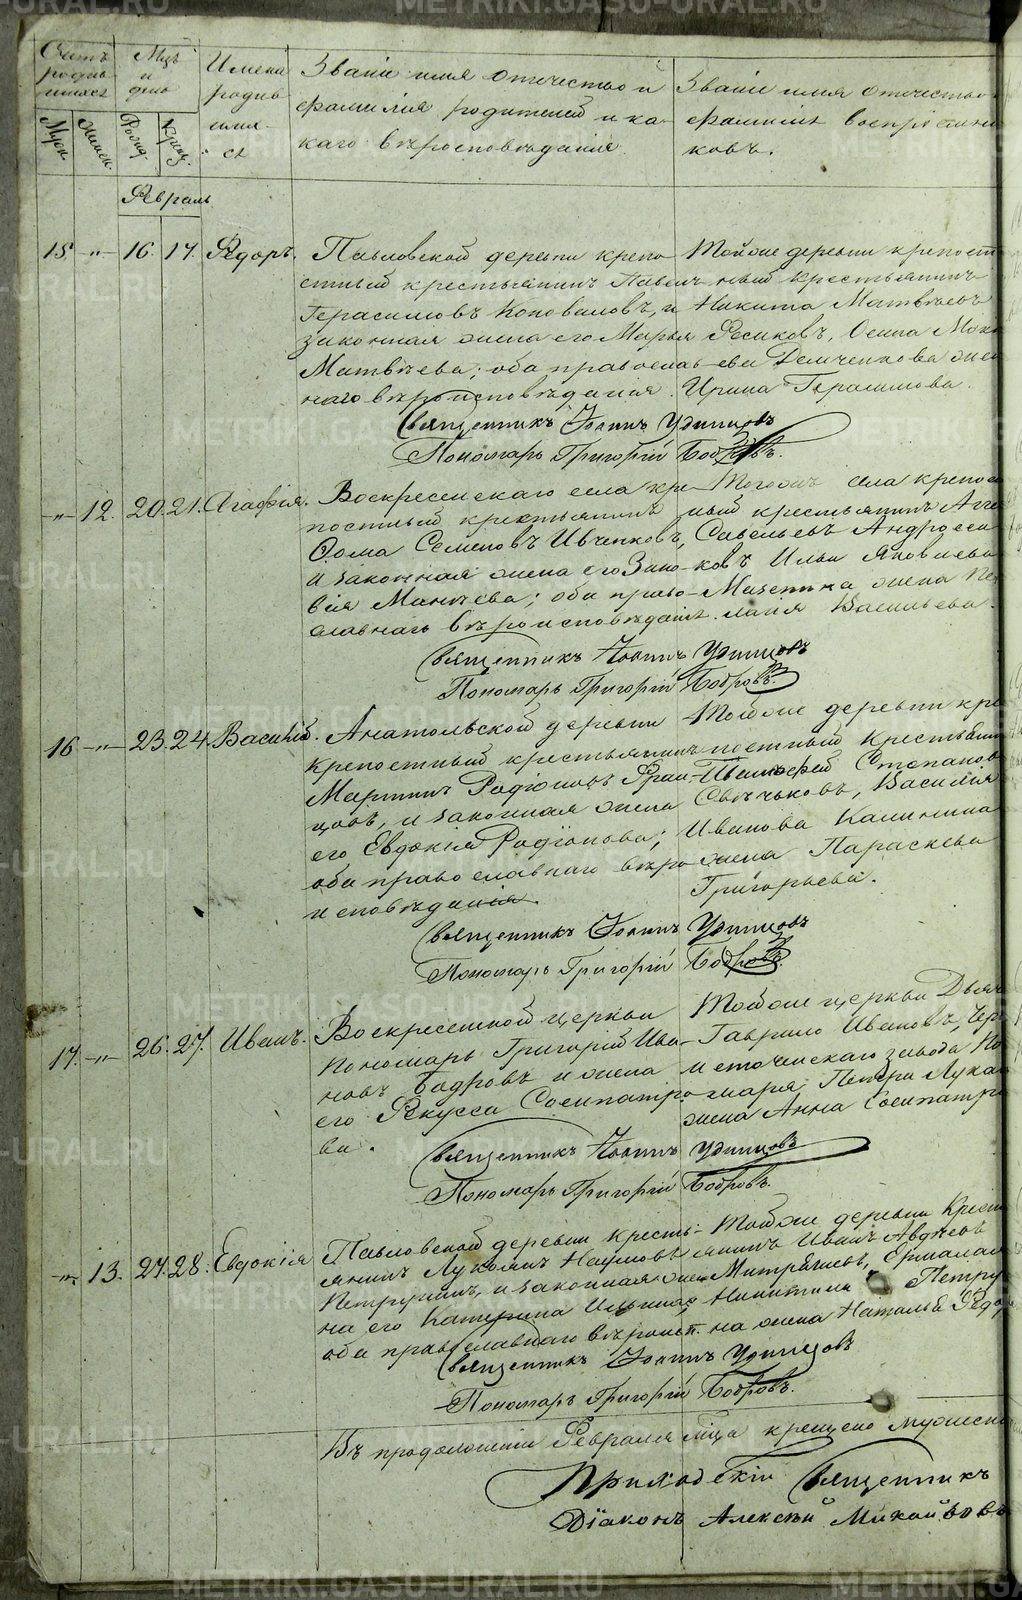 METRIKI.GASO-URAL.RU METRIKI.GASO-URAL.RU
Счетъ родившихся
Муж. Женс.
Мцъ и день
Рожд. Крещ.
Имена родившихся
Званіе имя отечество и
фамилія родителей и ка-
каго вѣроисповѣданія
Званіе имя отечество
фамилія воспріемни
ковъ.
Февраль
15 -"- 16. 17. Ѳедоръ.
Павловской деревни крепо-
стный крестьянинъ Павелъ
Герасимовъ Коноваловъ, и
законная жена его Марья
Матвѣева; оба православ-
наго вѣроисповѣданія.
Тойже деревни крепост
ный крестьянинъ
Никита Матвѣевъ
Осипа
Демченкова жен
Ирина Герасимова.
Священникъ Іоаннъ Удинцовъ
Пономарь Григорій Бобровъ.
-"- 12. 20. 21. Агафія.
Воскресенскаго села кре-
постный крестьянинъ
Ѳома Семеновъ Ивченковъ,
и законная жена его Зино-
вія Мануева; оба право-
славнаго вѣроисповѣданія.
Тогожъ села крепос
ный крестьянинъ
Савельевъ Андросен
ковъ Ильи Яковлева
жена Пе
лагія Васильева.
Священникъ Іоаннъ Удинцовъ
Пономарь Григорій Бобровъ.
16 -"- 23. 24. Василій.
Анатольской деревни
крепостный крестьянинъ
Мартинъ Радіоновъ Фран-
цовъ, и законная жена
его Евдокія Радіонова;
оба православнаго вѣро-
исповѣданія.
Тойже деревни кре
постный крестьянин
Тимофей Степанов
Свѣчьковъ, Василія
Иванова Калинина
жена Параскева
Григорьева.
Священникъ Іоаннъ Удинцовъ
Пономарь Григорій Бобровъ.
17. -"- 26. 27. Иванъ.
Воскресенской церкви
пономарь Григорій Ива-
новъ Бобровъ и жена
его Ѳекусса Сосипатро-
ва.
Тойже церкви Дьяч
Гаврило Ивановъ, Чер
меточинскаго завода По
номаря Петра Лука
жена Анна Сосипатр
Священникъ Іоаннъ Удинцовъ
Пономарь Григорій Бобровъ.
-"- 13. 27. 28. Евдокія
Павловской деревни кресть-
янинъ Лукоянъ Наумовъ
Петрунинъ, и законная же-
на его Катерина
оба православнаго вѣроисп.
Тойже деревни Крест
янинъ Иванъ Авдѣевъ
Никитина Петру
на жена Наталья Ѳедор
Священникъ Іоаннъ Удинцовъ
Пономарь Григорій Бобровъ.
Въ продолженіи Февраля мца крещено мужеска
Приходскій Священникъ
Діаконъ Алексѣй Михайловъ
METRIKI.GASO-URAL.RU METRIKI.GASO-URAL.RU